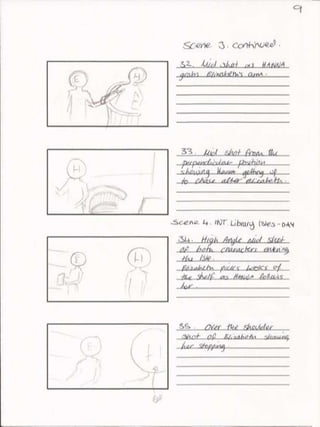 9
Scene 3. continued.
32. Mid shot as HANNA
grabs Elizabeth's arm.
33. Mid shot from the
perpendicular position
showing Hanna getting up
to chase after Elizabeth.
Scene 4. INT. Library Isles - DAY
34. High Angle mid shot
of both characters entering
the Isle.
Elizabeth picks books of
the shelf as Hanna follows
her.
35. Over the shoulder
shot of Elizabeth showing
her stopping.
E
H
E
H
E
H
E
H